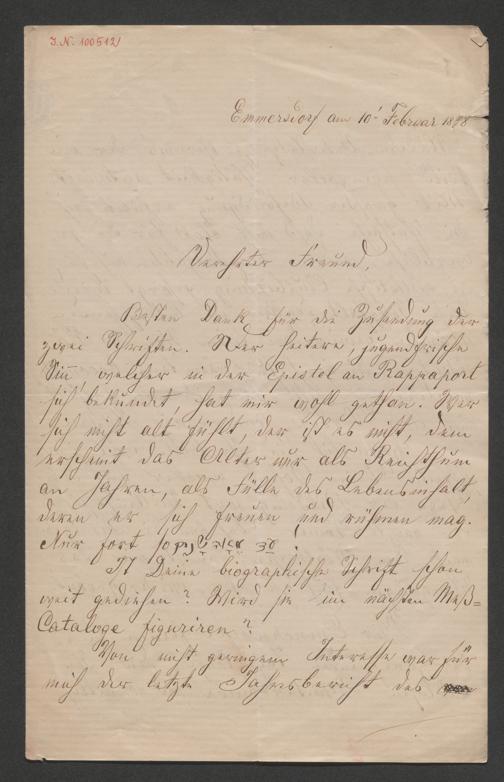 I.N. 100512
Emmersdorf am 10t Februar 1888
Verehrter Freund,
Besten Dank für die Zusendung der
zwei Schriften. Der heitere, jugendfrische
Sinn welcher in der Epistel an Rappaport
sich bekundet, hat mir wohl gethan. Wer
sich nicht alt fühlt, der ist es nicht, dem
erscheint das Alter nur als Reichthum
an Jahren, als Fülle des Lebensinhalt,
deren er sich freuen und rühmen mag.
Nur fort so עד מאה
Ist Deine biographische Schrift schon
weit gediehen? Wird sie im nächsten Meß-
Cataloge figuriren?
Von nicht geringem Interesse war für
mich der letzte Jahresbericht des